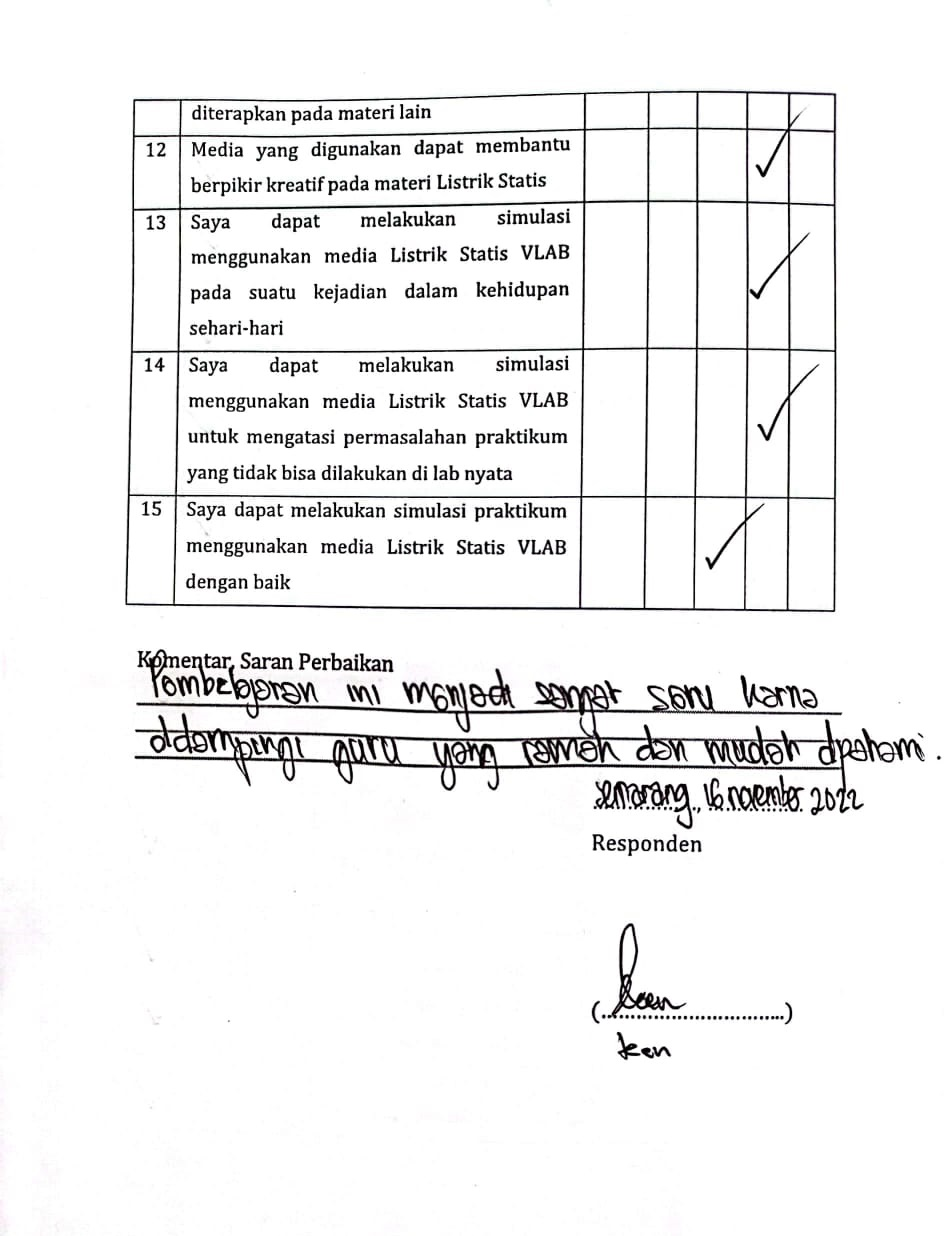 diterapkan pada materi lain
12 Media yang digunakan dapat membantu
berpikir kreatif pada materi Listrik Statis
13 Saya dapat melakukan simulasi
menggunakan media Listrik Statis VLAB
pada suatu kejadian dalam kehidupan
sehari-hari
14 Saya dapat melakukan simulasi
menggunakan media Listrik Statis VLAB
untuk mengatasi permasalahan praktikum
yang tidak bisa dilakukan di lab nyata
15 Saya dapat melakukan simulasi praktikum
menggunakan media Listrik Statis VLAB
dengan baik
Komentar, Saran Perbaikan
Pembelajaran ini menjadi sangat seru karna
didampingi guru yang ramah dan mudah dipahami.
Semarang, 16 november 2022
Responden
(................................)
ken